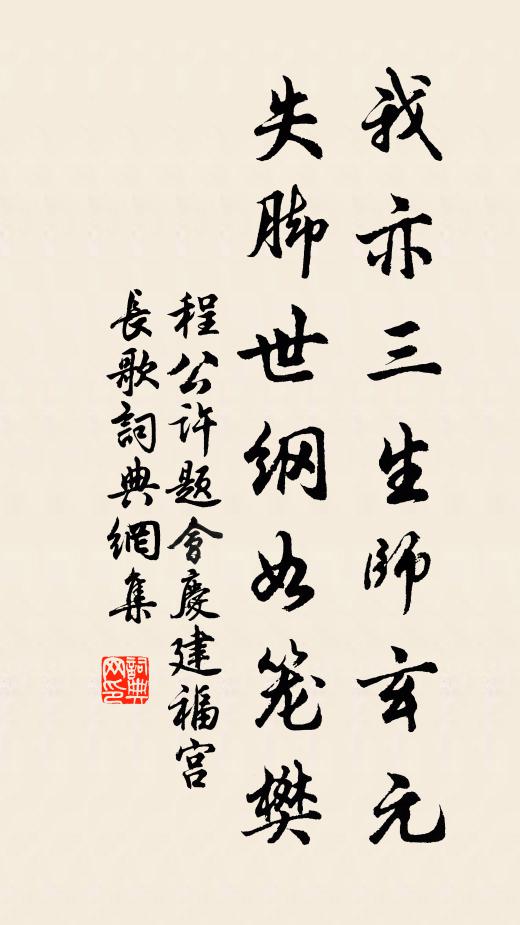 我亦三生師玄元
失脚世纲如笼樊
程公许题會慶建福宫
長歌詞典網集
詞典网印